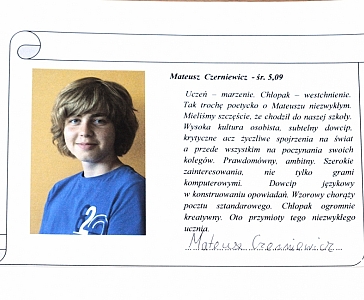 Mateusz Czerniewicz - śr. 5,09
Uczeń – marzenie. Chłopak – westchnienie.
Tak trochę poetycko o Mateuszu niezwykłym.
Mieliśmy szczęście, że chodził do naszej szkoły.
Wysoka kultura osobista, subtelny dowcip,
krytyczne acz życzliwe spojrzenia na świat
a przede wszystkim na poczynania swoich
kolegów. Prawdomówny, ambitny. Szerokie
zainteresowania, nie tylko grami
komputerowymi. Dowcip językowy
w konstruowaniu opowiadań. Wzorowy chorąży
pocztu sztandarowego. Chłopak ogromnie
kreatywny. Oto przymioty tego niezwykłego
ucznia.
Mateusz Czerniewicz